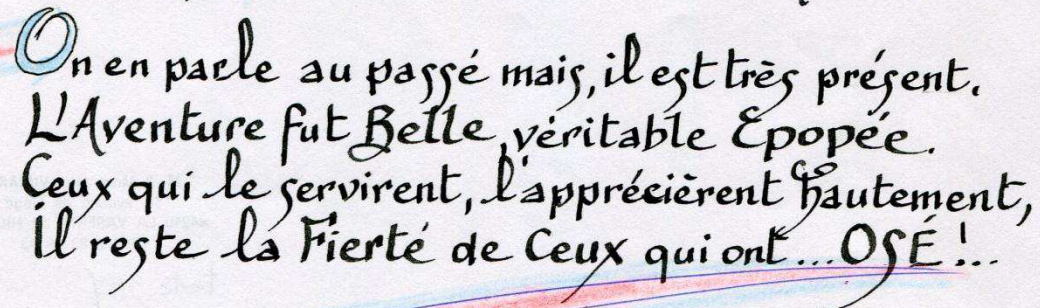 On en parle au passé mais, il est très présent.
L'Aventure fut Belle, véritable Epopée.
Ceux qui le servirent, l'apprécièrent hautement,
Il reste la Fierté de Ceux qui ont... OSÉ!...